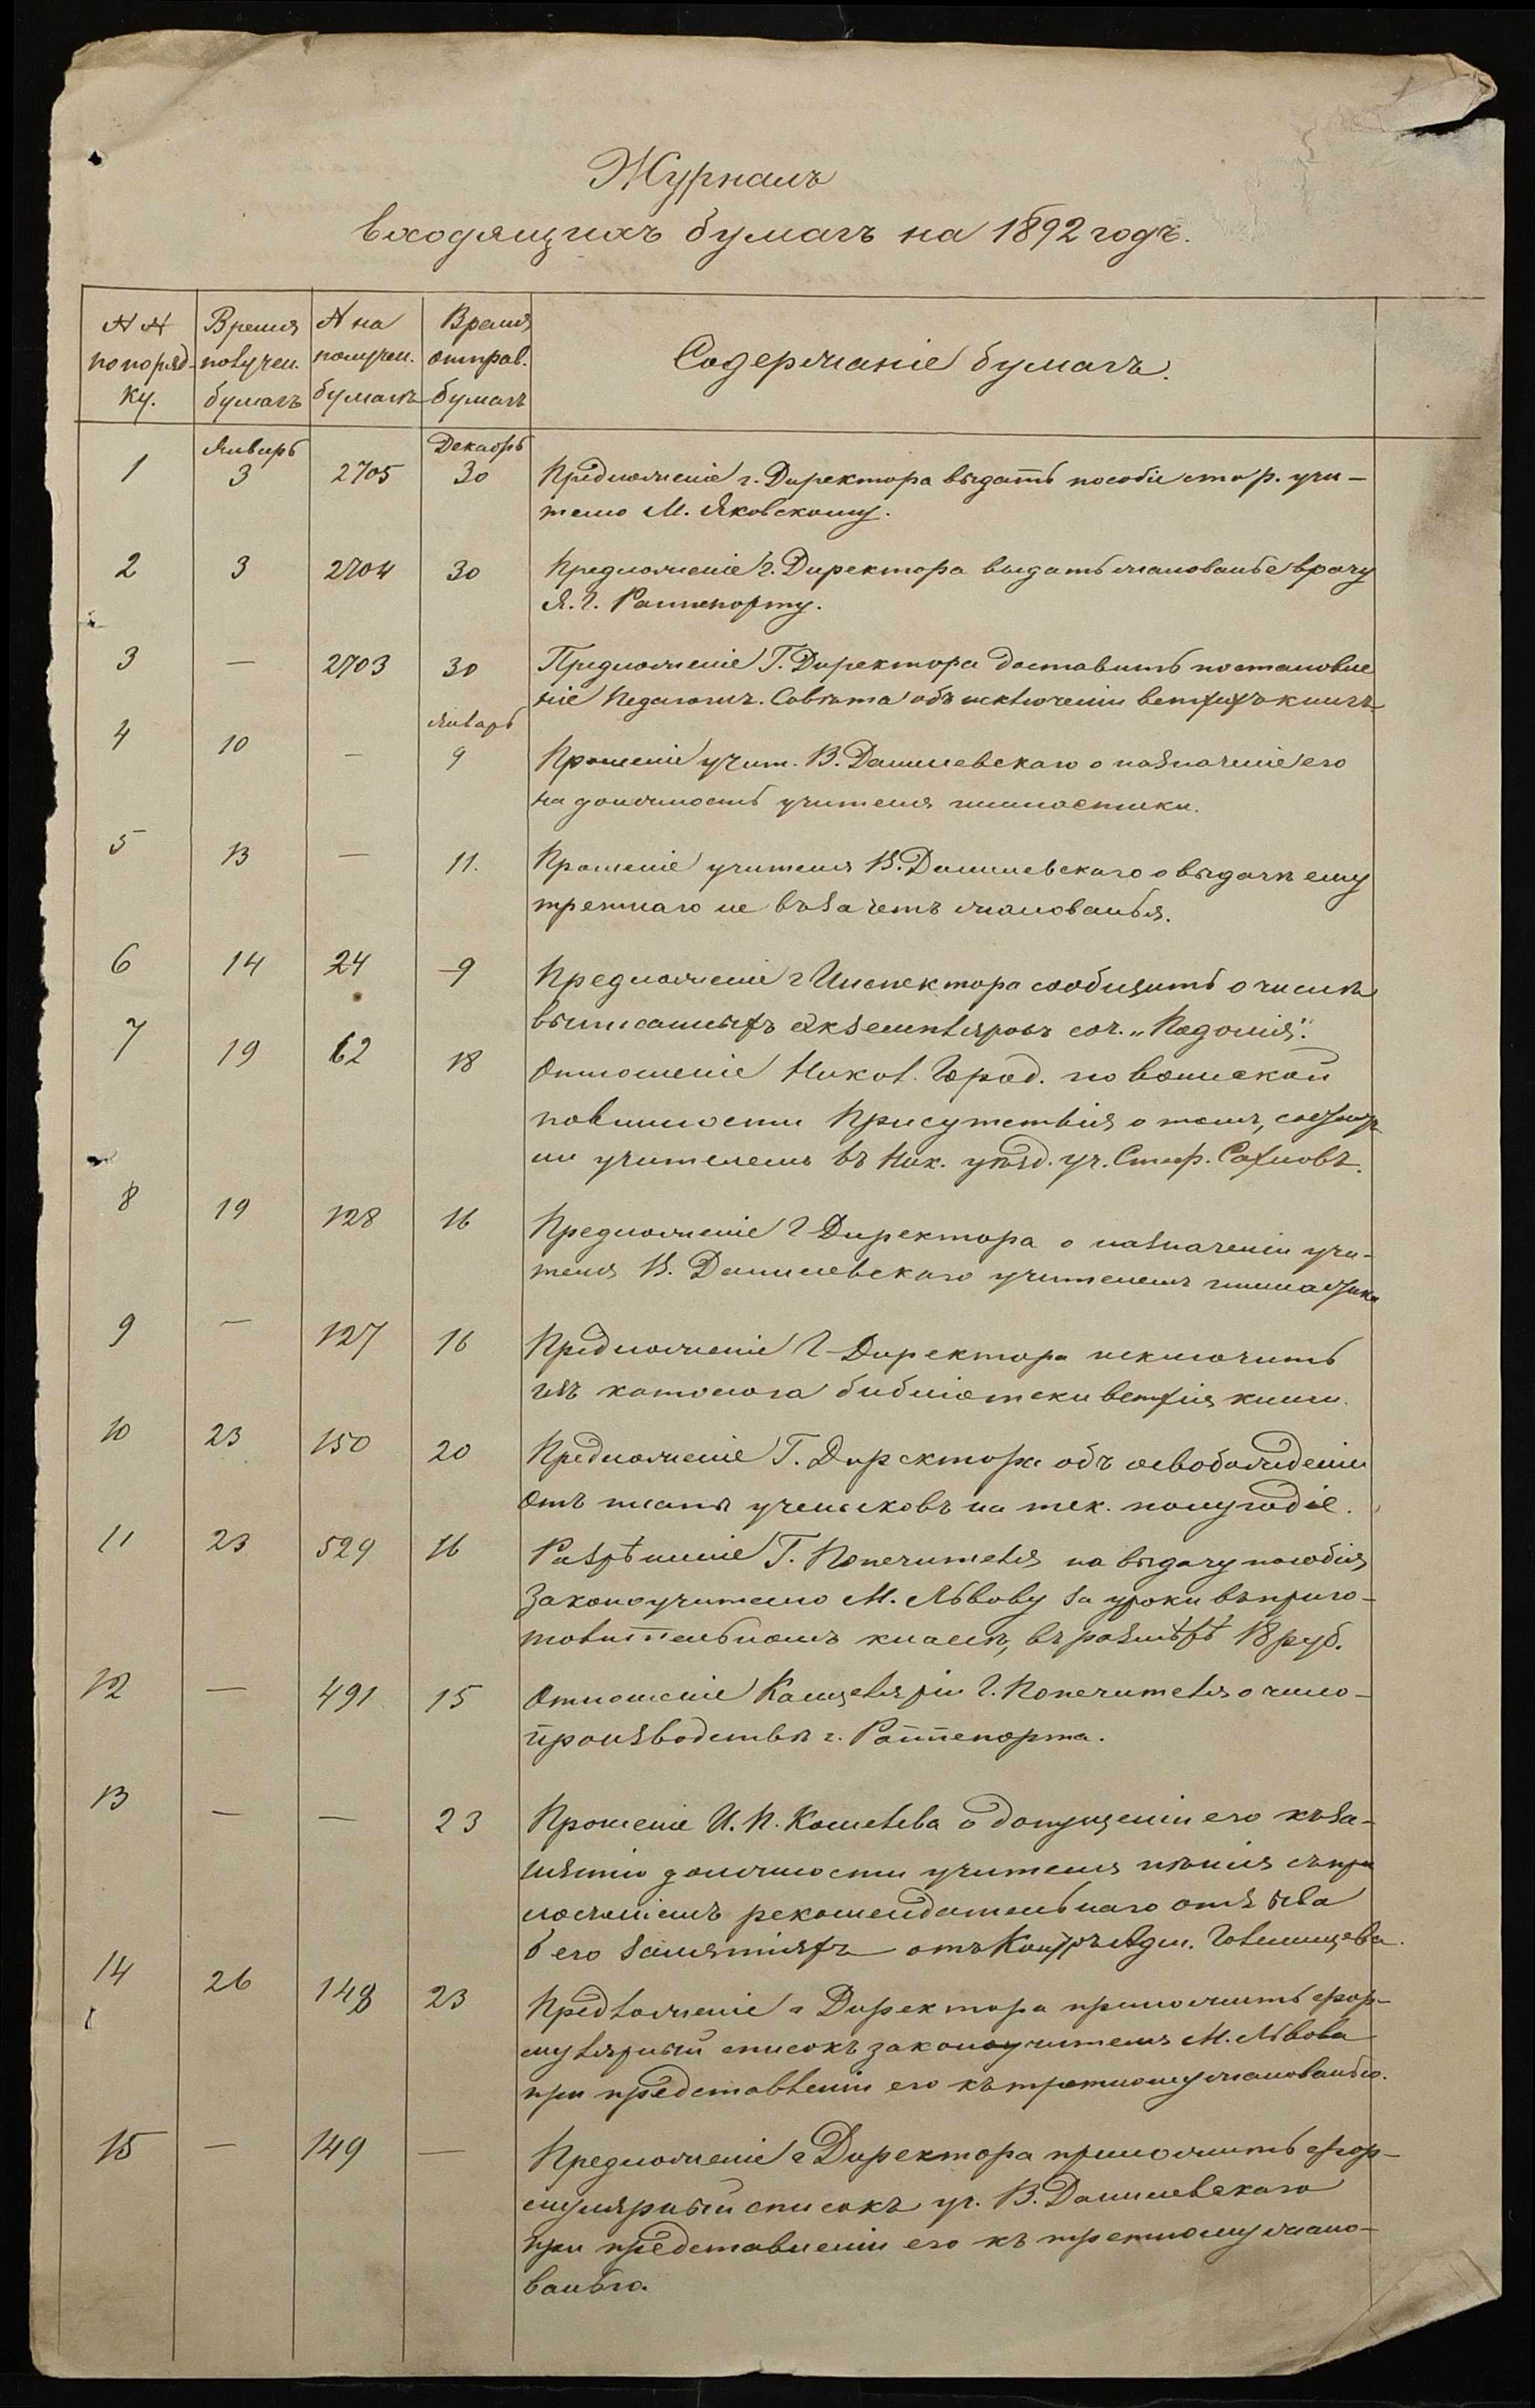 Журналъ
входящихъ бумагъ на 1892 годъ.
№№ по порядку. Время получен. бумагъ № на получен. бумагахъ Время отправ. бумагъ Содержаніе бумагъ.
Январь Декабрь
1 3 2705 30 Предложеніе г. Директора выдать пособіе стар. учи-
телю М. Яковскому.
2 3 2704 30 Предложеніе г. Директора выдать жалованье врачу
Я. Г. Раппепорту.
3 — 2703 30 Предложеніе Г. Директора доставить постановле
ніе Педагогич. Совѣта объ исключеніи ветхихъ книгъ
Январь
4 10 — 9 Прошеніе учит. В. Данилевскаго о назначеніе его
на должность учителя гимнастики.
5 13 — 11. Прошеніе учителя В. Данилевскаго о выдачѣ ему
третнаго не въ зачетъ жалованья.
6 14 24 9 Предложеніе г Инспектора сообщить о числѣ
выписанныхъ экземпляровъ соч.
7 19 62 18 Отношеніе Никол. Город. по воинской
повинности Присутствія о томъ, состоитъ
ли учителемъ въ Ник. уѣзд. уч. Стеф.
8 19 128 16 Предложеніе Г Директора о назначеніи учи-
теля В. Данилевскаго учителемъ гимнастики
9 — 127 16 Предложеніе Г Директора исключить
изъ каталога библіотеки ветхія книги.
10 23 150 20 Предложеніе Г. Директора объ освобожденіи
отъ платы учениковъ на тек. полугодіе.
11 23 529 16 Разрѣшеніе Г. Попечителя на выдачу пособія
Законоучителю М. Львову за уроки въ приго-
товительномъ классѣ, въ размѣрѣ 18 руб.
12 — 491 15 Отношеніе Канцеляріи Г. Попечителя о чино-
производствѣ г. Раппепорта.
13 — — 23 Прошеніе И. П. Кошелева о допущеніи его къ за-
нятію должности учителя пѣнія съ при
ложеніемъ рекомендательнаго отзыва
о его занятіяхъ отъ Контръ Адм.
14 26 148 23 Предложеніе г Директора приложить фор-
мулярный списокъ законоучителя М. Львова
при представленіи его къ третному жалованью.
15 — 149 — Предложеніе г Директора приложить фор-
мулярный списокъ уч. В. Данилевскаго
при представленіи его къ третному жало-
ванью.